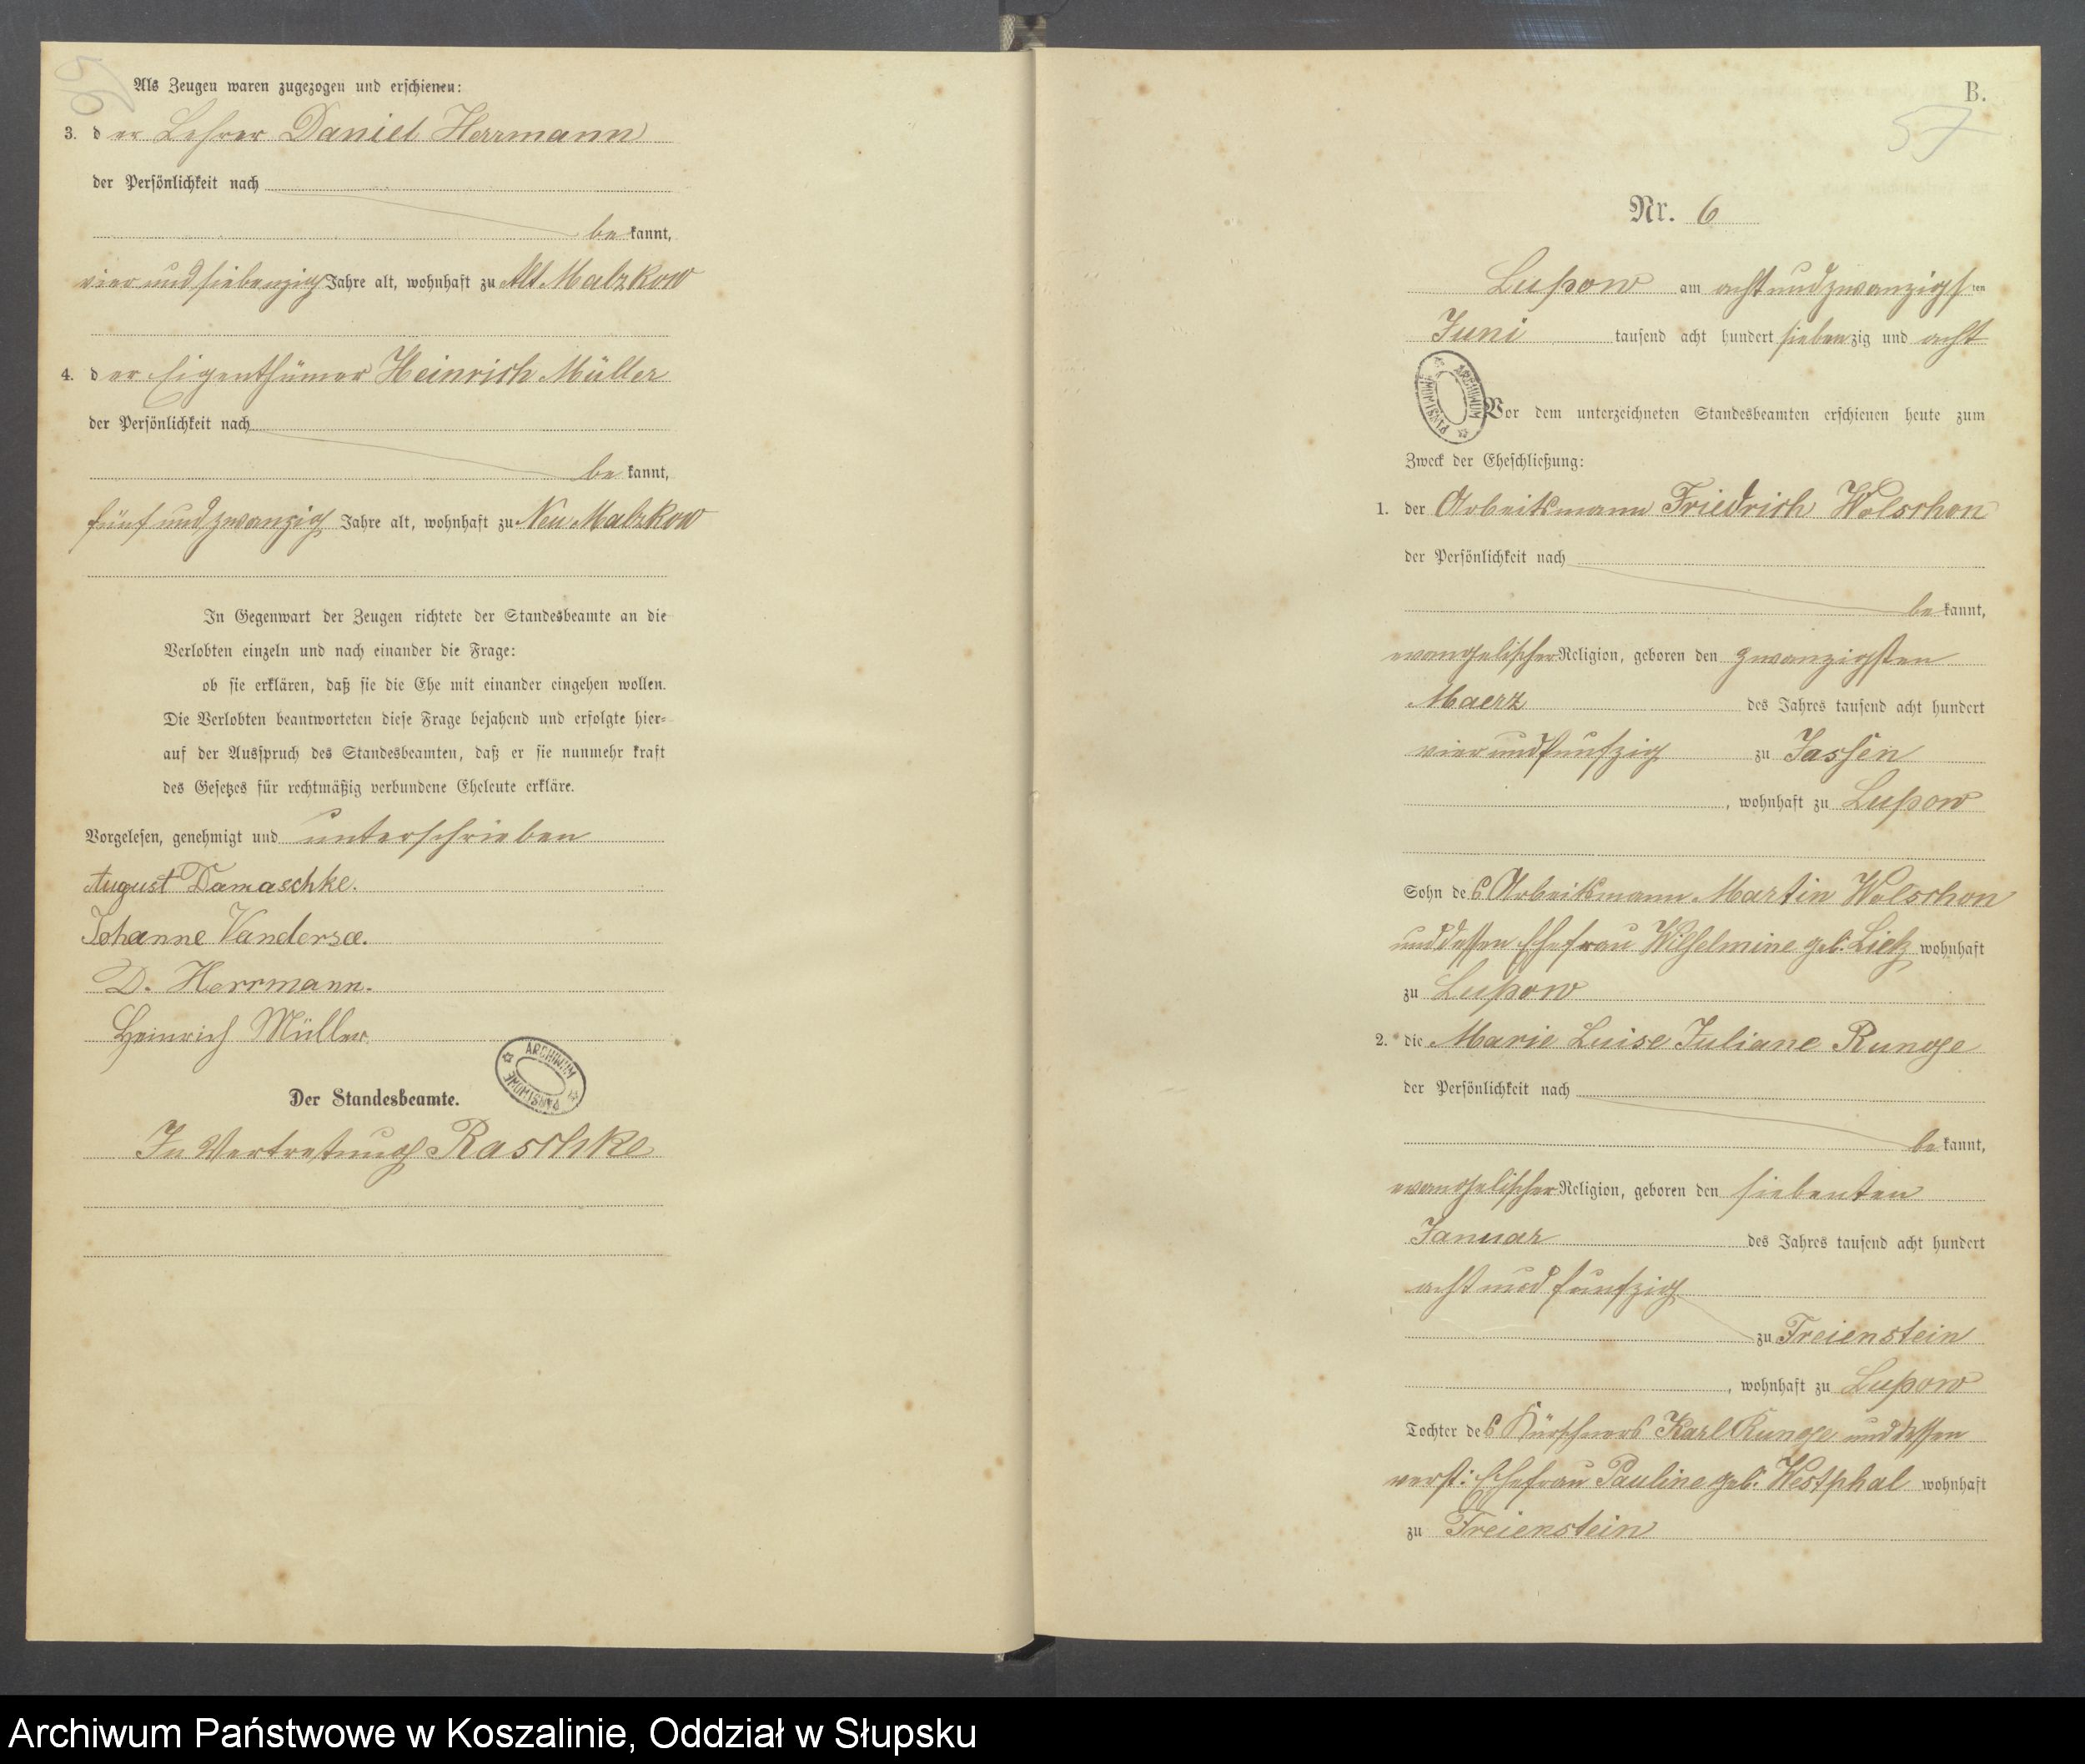 56
Als Zeugen waren zugezogen und erschienen:
3. der Lehrer Daniel Herrmann
der Persönlichkeit nach
bekannt,
vier und siebenzig Jahre alt, wohnhaft zu Alt Malzkow
4. der Eigenthümer Heinrich Müller
der Persönlichkeit nach
bekannt,
fünf und zwanzig Jahre alt, wohnhaft zu Neu Malzkow
In Gegenwart der Zeugen richtete der Standesbeamte an die
Verlobten einzeln und nach einander die Frage:
ob sie erklären, daß sie die Ehe mit einander eingehen wollen.
Die Verlobten beantworteten diese Frage bejahend und erfolgte hier-
auf der Ausspruch des Standesbeamten, daß er sie nunmehr kraft
des Gesetzes für rechtmäßig verbundene Eheleute erkläre.
Vorgelesen, genehmigt und unterschrieben
August Damaschke.
Johanne Vandersee.
D. Herrmann.
Heinrich Müller
Der Standesbeamte.
ARCHIWUM PAŃSTWOWE
In Vertretung Raschke
B.
57
Nr. 6
Lupow am acht und zwanzigsten
Juni tausend acht hundert siebenzig und acht
ARCHIWUM PAŃSTWOWE
Vor dem unterzeichneten Standesbeamten erschienen heute zum
Zweck der Eheschließung:
1. der Arbeitsmann Friedrich Wolschon
der Persönlichkeit nach
bekannt,
evangelischer Religion, geboren den zwanzigsten
Maerz des Jahres tausend acht hundert
vier und funfzig zu Jassen
, wohnhaft zu Lupow
Sohn des Arbeitsmann Martin Wolschon
und dessen Ehefrau Wilhelmine geb. Lietz wohnhaft
zu Lupow
2. die Marie Luise Juliane Runge
der Persönlichkeit nach
bekannt,
evangelischer Religion, geboren den siebenten
Januar des Jahres tausend acht hundert
acht und funfzig
zu Freienstein
, wohnhaft zu Lupow
Tochter des Kürschners Karl Runge und dessen
verst: Ehefrau Pauline geb. Westphal wohnhaft
zu Freienstein
Archiwum Państwowe w Koszalinie, Oddział w Słupsku